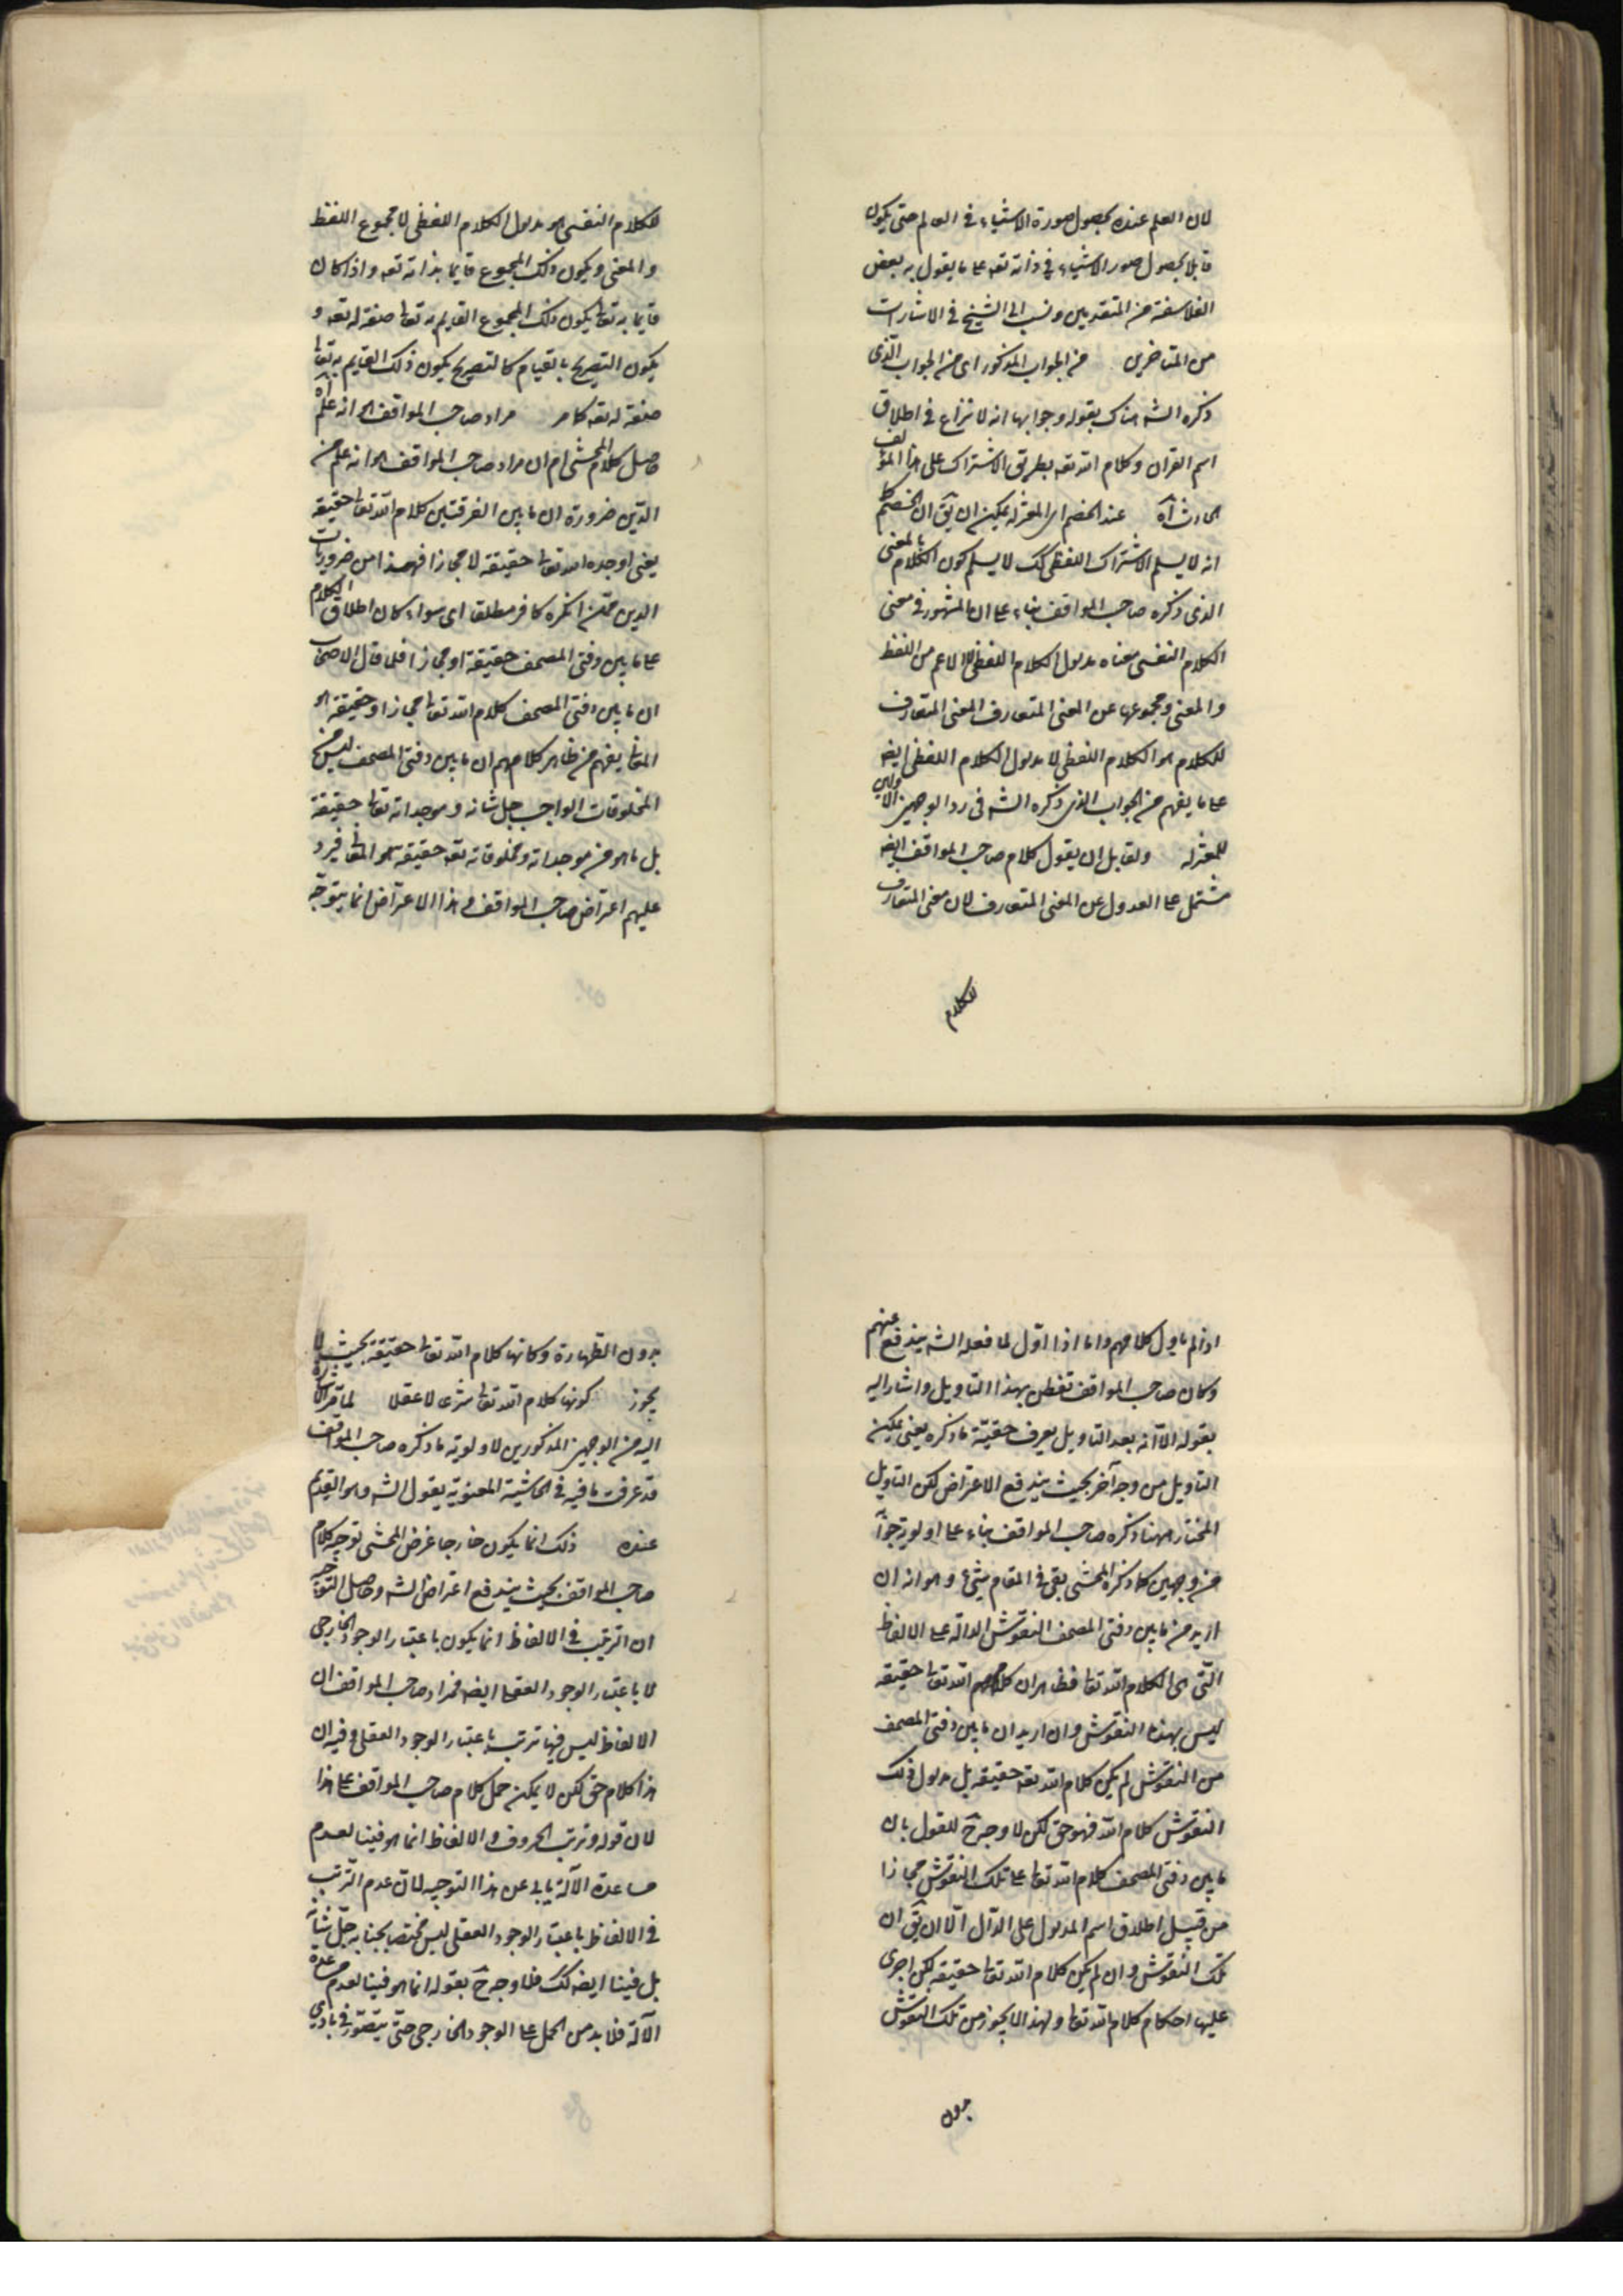 لان العلم عنده بحصول صورة الاشياء في العالم حتى يكون
قابلا بحصول صور الاشياء في ذاته تعه على ما يقول به بعض
الفلاسفة من المتقدمين ونسب الى الشيخ في الاشارات
من المتاخرين من الجواب المذكور اى من الجواب الذى
ذكره الشه هناك بقوله وجوابها انه لا نزاع في اطلاق
اسم القران وكلام الله تعه بطريق الاشتراك على هذا المؤلف
الحادث اه عند الخصم اى المعتزله يمكن ان يق ان الخصم كما
انه لا يسلم الاشتراك اللفظى كك لا يسلم كون الكلام بالمعنى
الذى ذكره صاحب المواقف بناء على ان المشهور في معنى
الكلام النفسى معناه مدلول الكلام اللفظى لا الاعم من اللفظ
والمعنى ومجموعهما عن المعنى المتعارف المعنى المتعارف
للكلام هو الكلام اللفظى لا مدلول الكلام اللفظى ايضه
على ما يفهم من الجواب الذى ذكره الشه في رد الوجهين الاولين
للمعتزله ولقايل ان يقول كلام صاحب المواقف ايضه
مشتمل على العدول عن المعنى المتعارف لان معنى المتعارف
للكلام
للكلام النفسى هو مدلول الكلام اللفظى لا مجموع اللفظ
والمعنى ويكون ذلك المجموع قايما بذاته تعه واذا كان
قايما به تعا يكون ذلك المجموع القايم به تعا صفة له تعه و
يكون التصريح بالقيام كالتصريح بكون ذلك القايم به تعا
صفة له تعه كما مر مراد صاحب المواقف هو انه علم اه
حاصل كلام المحشى ام ان مراد صاحب المواقف هو انه علم من
الدين ضرورة ان ما بين الدفتين كلام الله تعا حقيقة
يعنى اوجده الله تعا حقيقة لا مجازا فهذا من ضروريات
الدين فمن انكره كافر مطلقا اى سواء كان اطلاق الكلام
على ما بين دفتى المصحف حقيقة او مجازا فلما قال الاصحاب
ان ما بين دفتى المصحف كلام الله تعا مجازا وحقيقة هو
المعنى يفهم من ظاهر كلامهم ان ما بين دفتى المصحف ليس من
المخلوقات الواجب جل شانه وموجداته تعا حقيقة
بل ما هو من موجداته ومخلوقاته تعه حقيقة هو المعنى فيرد
عليهم اعتراض صاحب المواقف وهذا الاعتراض انما يتوجه
اذا لم ياول كلامهم واما اذا اول لما فعله الشه يندفع عنهم
وكان صاحب المواقف تفطن بهذا التاويل واشار اليه
بقوله الا انه بعد التاويل يعرف حقيته ما ذكره يعنى يمكن
التاويل من وجه آخر بحيث يندفع الاعتراض لكن التاويل
المختار ههنا ذكره صاحب المواقف بناء على اولويته
من وجهين كما ذكره المحشى بقى في المقام شىء وهو انه ان
اريد من ما بين دفتى المصحف النقوش الدالة على الالفاظ
التى هى الكلام الله تعا فظاهر ان كلام الله تعا حقيقة
ليس بهذه النقوش وان اريد ان ما بين دفتى المصحف
من النقوش لم يكن كلام الله تعه حقيقة بل مدلول ذلك
النقوش كلام الله فهو حق لكن لا وجه ح للقول بان
ما بين دفتى المصحف كلام الله تعا على تلك النقوش مجازا
من قبيل اطلاق اسم المدلول على الدال الا ان يق ان
تلك النقوش وان لم يكن كلام الله تعا حقيقة لكن اجرى
عليها احكام كلام الله تعا ولهذا لا يجوز من تلك النقوش
بدون
بدون الطهارة وكانها كلام الله تعا حقيقة بحيث لا
يجوز كونها كلام الله تعا شرعا لا عقلا
اليه من الوجهين المذكورين لاولوية ما ذكره صاحب المواقف
قد عرفت ما فيه في الحاشية المعنونة بقول الشه وهو القديم
عنده ذلك انما يكون خارجا غرض المحشى توجيه كلام
صاحب المواقف بحيث يندفع اعتراض الشه وحاصل التوجيه
ان الترتيب في الالفاظ انما يكون باعتبار الوجود الخارجى
لا باعتبار الوجود العقلى ايضه فمراد صاحب المواقف ان
الالفاظ ليس فيها ترتب باعتبار الوجود العقلى وفيه ان
هذا كلام حق لكن لا يمكن حمل كلام صاحب المواقف على هذا
لان قوله وترتب الحروف والالفاظ انما هو فينا لعدم
مساعدة الآلة يابى عن هذا التوجيه لان عدم الترتب
في الالفاظ باعتبار الوجود العقلى ليس مختصا بجنابه جل شانه
بل فينا ايضه كك فلا وجه ح بقوله انما هو فينا لعدم مساعدة
الآلة فلا بد من الحمل على الوجود الخارجى حتى يتصور في بادى